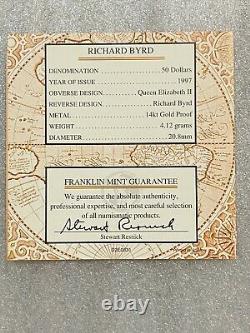 RICHARD BYRD
DENOMINATION 50 Dollars
YEAR OF ISSUE 1997
OBVERSE DESIGN Queen Elizabeth II
REVERSE DESIGN Richard Byrd
METAL 14kt Gold Proof
WEIGHT 4.12 grams
DIAMETER 20.8mm
FRANKLIN MINT GUARANTEE
We guarantee the absolute authenticity,
professional expertise, and most careful selection
of all numismatic products.
Stewart Resnick
Stewart Resnick